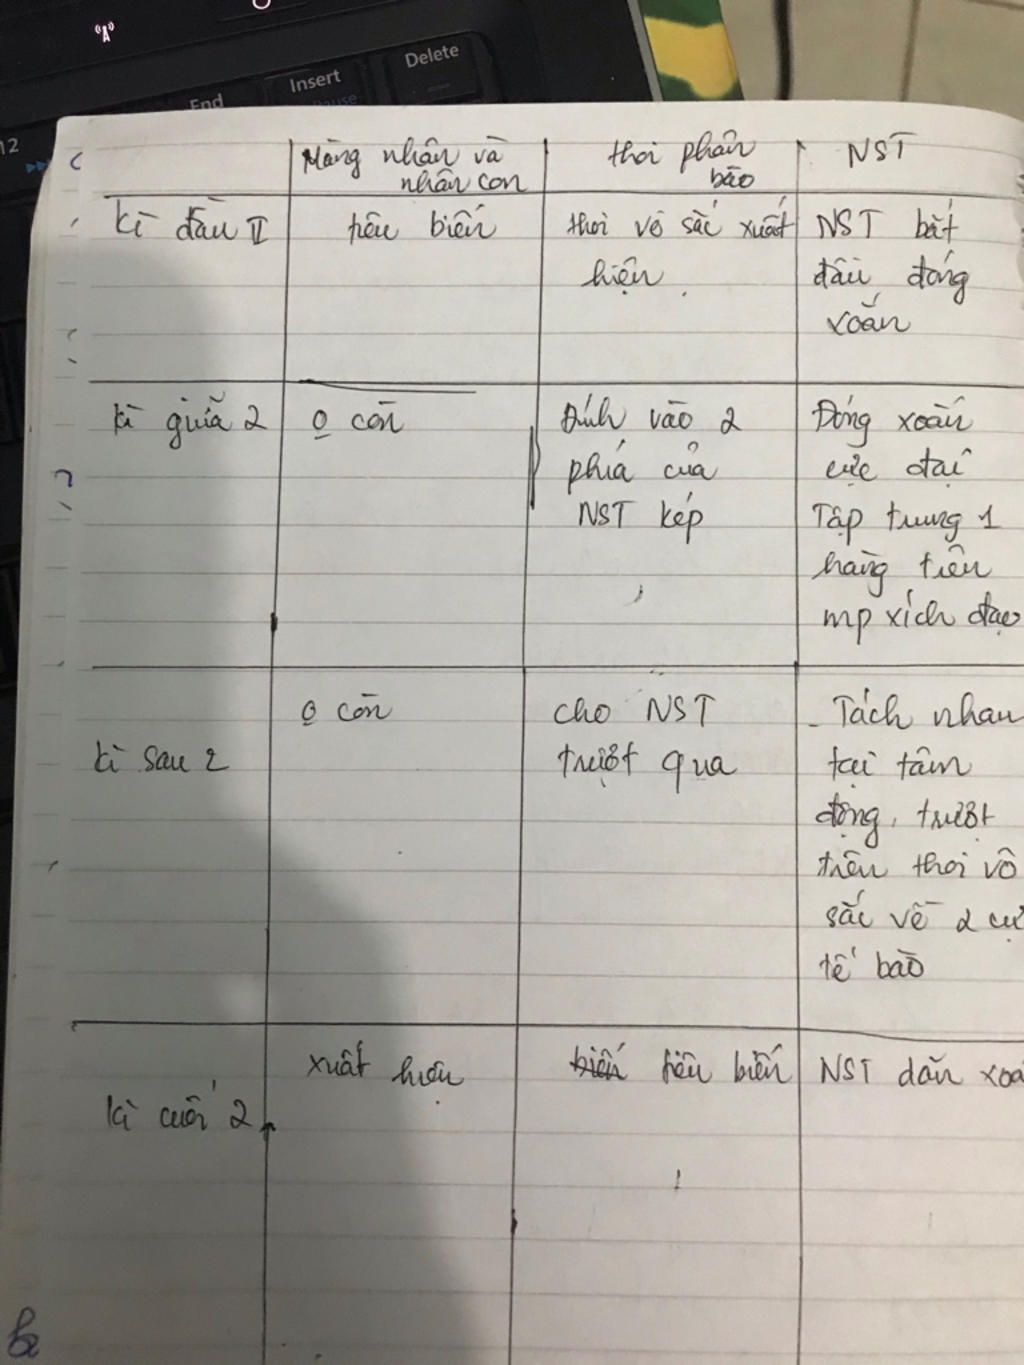 Delete
Insert
Pause
End
12
Màng nhân và
nhân con
thoi phân
bào
NST
kì đầu II
tiêu biến
thoi vô sắc xuất
hiện
NST bắt
đầu đóng
xoắn
kì giữa 2
o còn
Đính vào 2
phía của
NST kép
Đóng xoắn
cực đại
Tập trung 1
hàng trên
mp xích đạo
kì sau 2
o còn
cho NST
trượt qua
- Tách nhau
tại tâm
động, trượt
trên thoi vô
sắc về 2 cự
tế bào
kì cuối 2
xuất hiện
biến tiêu biến
NST dãn xoă